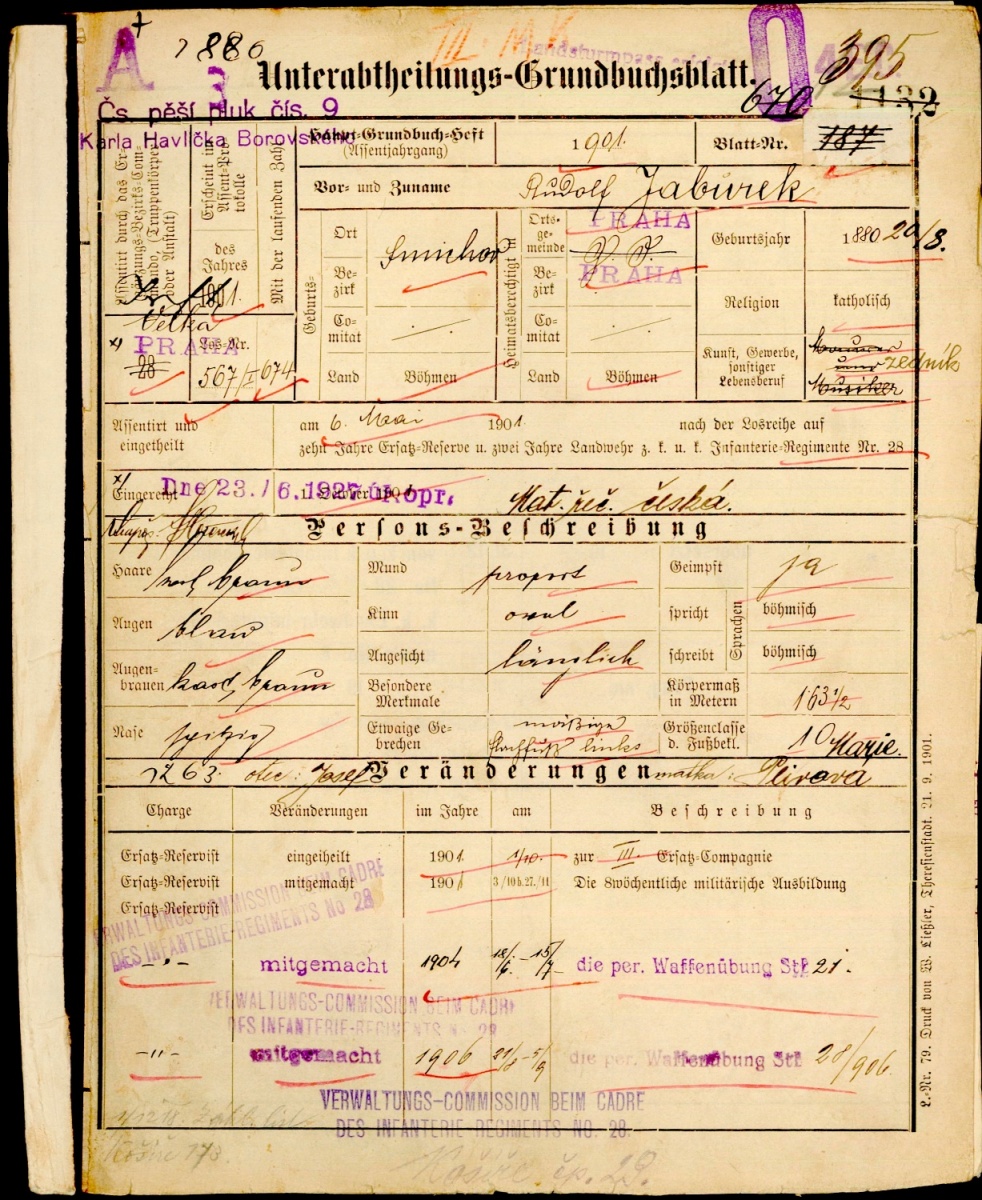 A
1880
III. M.K.
Landsturmpass
395
Unterabtheilungs-Grundbuchsblatt.
670
1132
Čs. pěší pluk čís. 9
Karla Havlíčka Borovského
Haupt-Grundbuch-Heft
(Assentjahrgang)
1901.
Blatt-Nr.
187
Assentirt durch das Ergänzungs-Bezirks-Commando, (Truppenkörper oder Anstalt)
Erscheint im Assent-Protokolle
des Jahres
1901.
Mit der laufenden Zahl
Vor- und Zuname
Rudolf Jabůrek
Geburts-
Ort
Smichov
Bezirk
Comitat
Land
Böhmen
Heimatsberechtigt in
Ortsgemeinde
PRAHA
Bezirk
PRAHA
Comitat
Land
Böhmen
Geburtsjahr
1880 20/8.
Religion
katholisch
Kunst, Gewerbe, sonstiger Lebensberuf
Maurer und Musiker
zedník
Velká
PRAHA
28
Los-Nr.
567/I
674
Assentirt und eingetheilt
am 6. Mai 1901. nach der Losreihe auf
zehn Jahre Ersatz-Reserve u. zwei Jahre Landwehr z. k. u. k. Infanterie-Regimente Nr. 28
Eingereiht
Dne 23./6.1927 úk.opr.
1. October 190
Mat. řeč. česká.
Persons-Beschreibung
Haare
braun
Mund
proport
Geimpft
ja
Augen
blau
Kinn
oval
spricht
Sprachen
böhmisch
Augenbrauen
kast. braun
Angesicht
länglich
schreibt
böhmisch
Besondere Merkmale
Körpermaß in Metern
1·63 1/2
Nase
spitzig
Etwaige Gebrechen
mäßiger Plattfuß links
Größenclasse d. Fußbekl.
10
Marie.
7263. otec: Josef
Veränderungen
matka:
Charge
Veränderungen
im Jahre
am
Beschreibung
Ersatz-Reservist
eingetheilt
1901
1/10.
zur III. Ersatz-Compagnie
Ersatz-Reservist
mitgemacht
1901
3/10 b. 27./11
Die 8wöchentliche militärische Ausbildung
Ersatz-Reservist
VERWALTUNGS-COMMISSION BEIM CADRE
DES INFANTERIE-REGIMENTS No 28
-"-
mitgemacht
1904
18/6. - 15/7
die per. Waffenübung Stb 21.
VERWALTUNGS-COMMISSION BEIM CADRE
DES INFANTERIE-REGIMENTS No 28
-"-
mitgemacht
1906
21/8 - 5/9
die per. Waffenübung Stb 28/906.
VERWALTUNGS-COMMISSION BEIM CADRE
DES INFANTERIE-REGIMENTS NO. 28.
Košíře 173.
Košíře čp. 29.
L.-Nr. 79. Druck von W. Ließler, Theresienstadt. 21. 9. 1901.